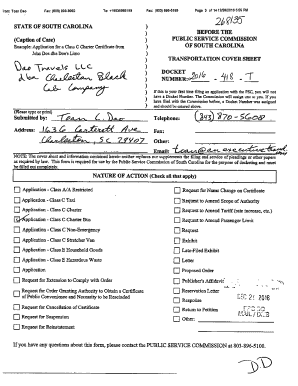 268195
STATE OF SOUTH CAROLINA
(Caption of Case)
Example: Application for a Class C Charter Certificate from
John Doe dba Doe's Limo
Dao Travels LLC
dba Charleston Black
Cab Company
BEFORE THE
PUBLIC SERVICE COMMISSION
OF SOUTH CAROLINA
TRANSPORTATION COVER SHEET
DOCKET
NUMBER: 2016 - 418 - T
If this is your first time filing an application with the PSC, you will not
have a Docket Number. The Commission will assign one to you. If you
have filed with the Commission before, a Docket Number was assigned
and should be entered above.
(Please type or print)
Submitted by: Toan C. Dao
Address: 1636
Charleston, SC 29407
Telephone: (843) 870-5608
Fax:
Other:
Email:
NOTE: The cover sheet and information contained herein neither replaces nor supplements the filing and service of pleadings or other papers
as required by law. This form is required for use by the Public Service Commission of South Carolina for the purpose of docketing and must
be filled out completely.
NATURE OF ACTION (Check all that apply)
Application - Class A/A Restricted
Application - Class C Taxi
Application - Class C Charter
Application - Class C Charter Bus
Application - Class C Non-Emergency
Application - Class C Stretcher Van
Application - Class E Household Goods
Application - Class E Hazardous Waste
Application
Request for Extension to Comply with Order
Request for Order Granting Authority to Obtain a Certificate
of Public Convenience and Necessity to be Rescinded
Request for Cancellation of Certificate
Request for Suspension
Request for Reinstatement
Request for Name Change on Certificate
Request to Amend Scope of Authority
Request to Amend Tariff (rate increase, etc.)
Request to Amend Passenger Limit
Request
Exhibit
Late-Filed Exhibit
Letter
Proposed Order
Publisher's Affidavit
Reservation Letter
Response
Return to Petition
Other:
DEC 21 2016
If you have any questions about this form, please contact the PUBLIC SERVICE COMMISSION at 803-896-5100.
DD